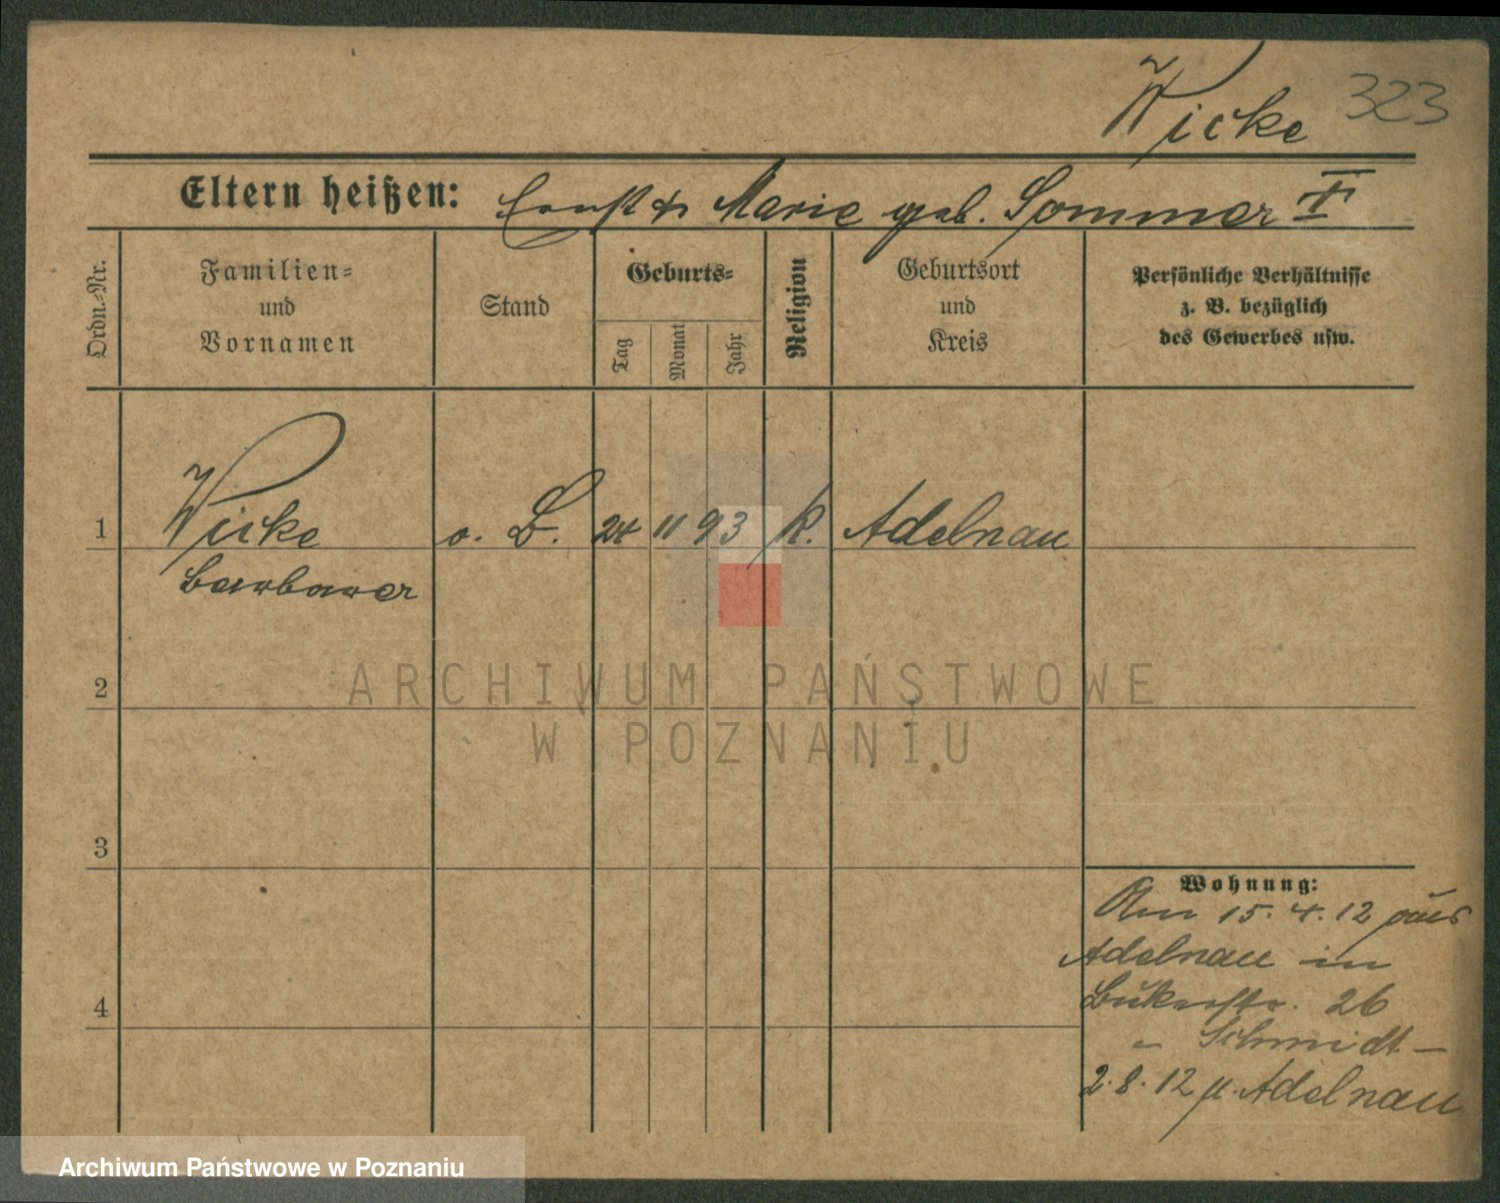 Wicke 323
Eltern heißen: Ernst & Marie geb. Sommer †
Ordn.-Nr.
Familien-
und
Vornamen
Stand
Geburts-
Tag
Monat
Jahr
Religion
Geburtsort
und
Kreis
Persönliche Verhältnisse
z. B. bezüglich
des Gewerbes usw.
1 Wicke o. B. 24 11 93 k. Adelnau
2
3
4
Wohnung:
Am 15. 4. 12 aus
Adelnau in
Bukerstr. 26
- Schmidt -
2. 8. 12 n. Adelnau
ARCHIWUM PAŃSTWOWE
W POZNANIU
Archiwum Państwowe w Poznaniu